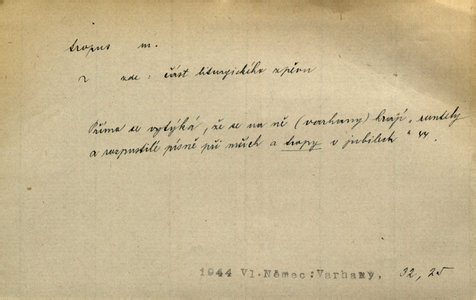 tropus m.
2 zde: část liturgického zpěvu
Přímo se vytýká, že se na ně (varhany) hrají „rundely
a rozpustilé písně při mších a tropy v jubilech “
1944 Vl.Němec:Varhany, 32, 25